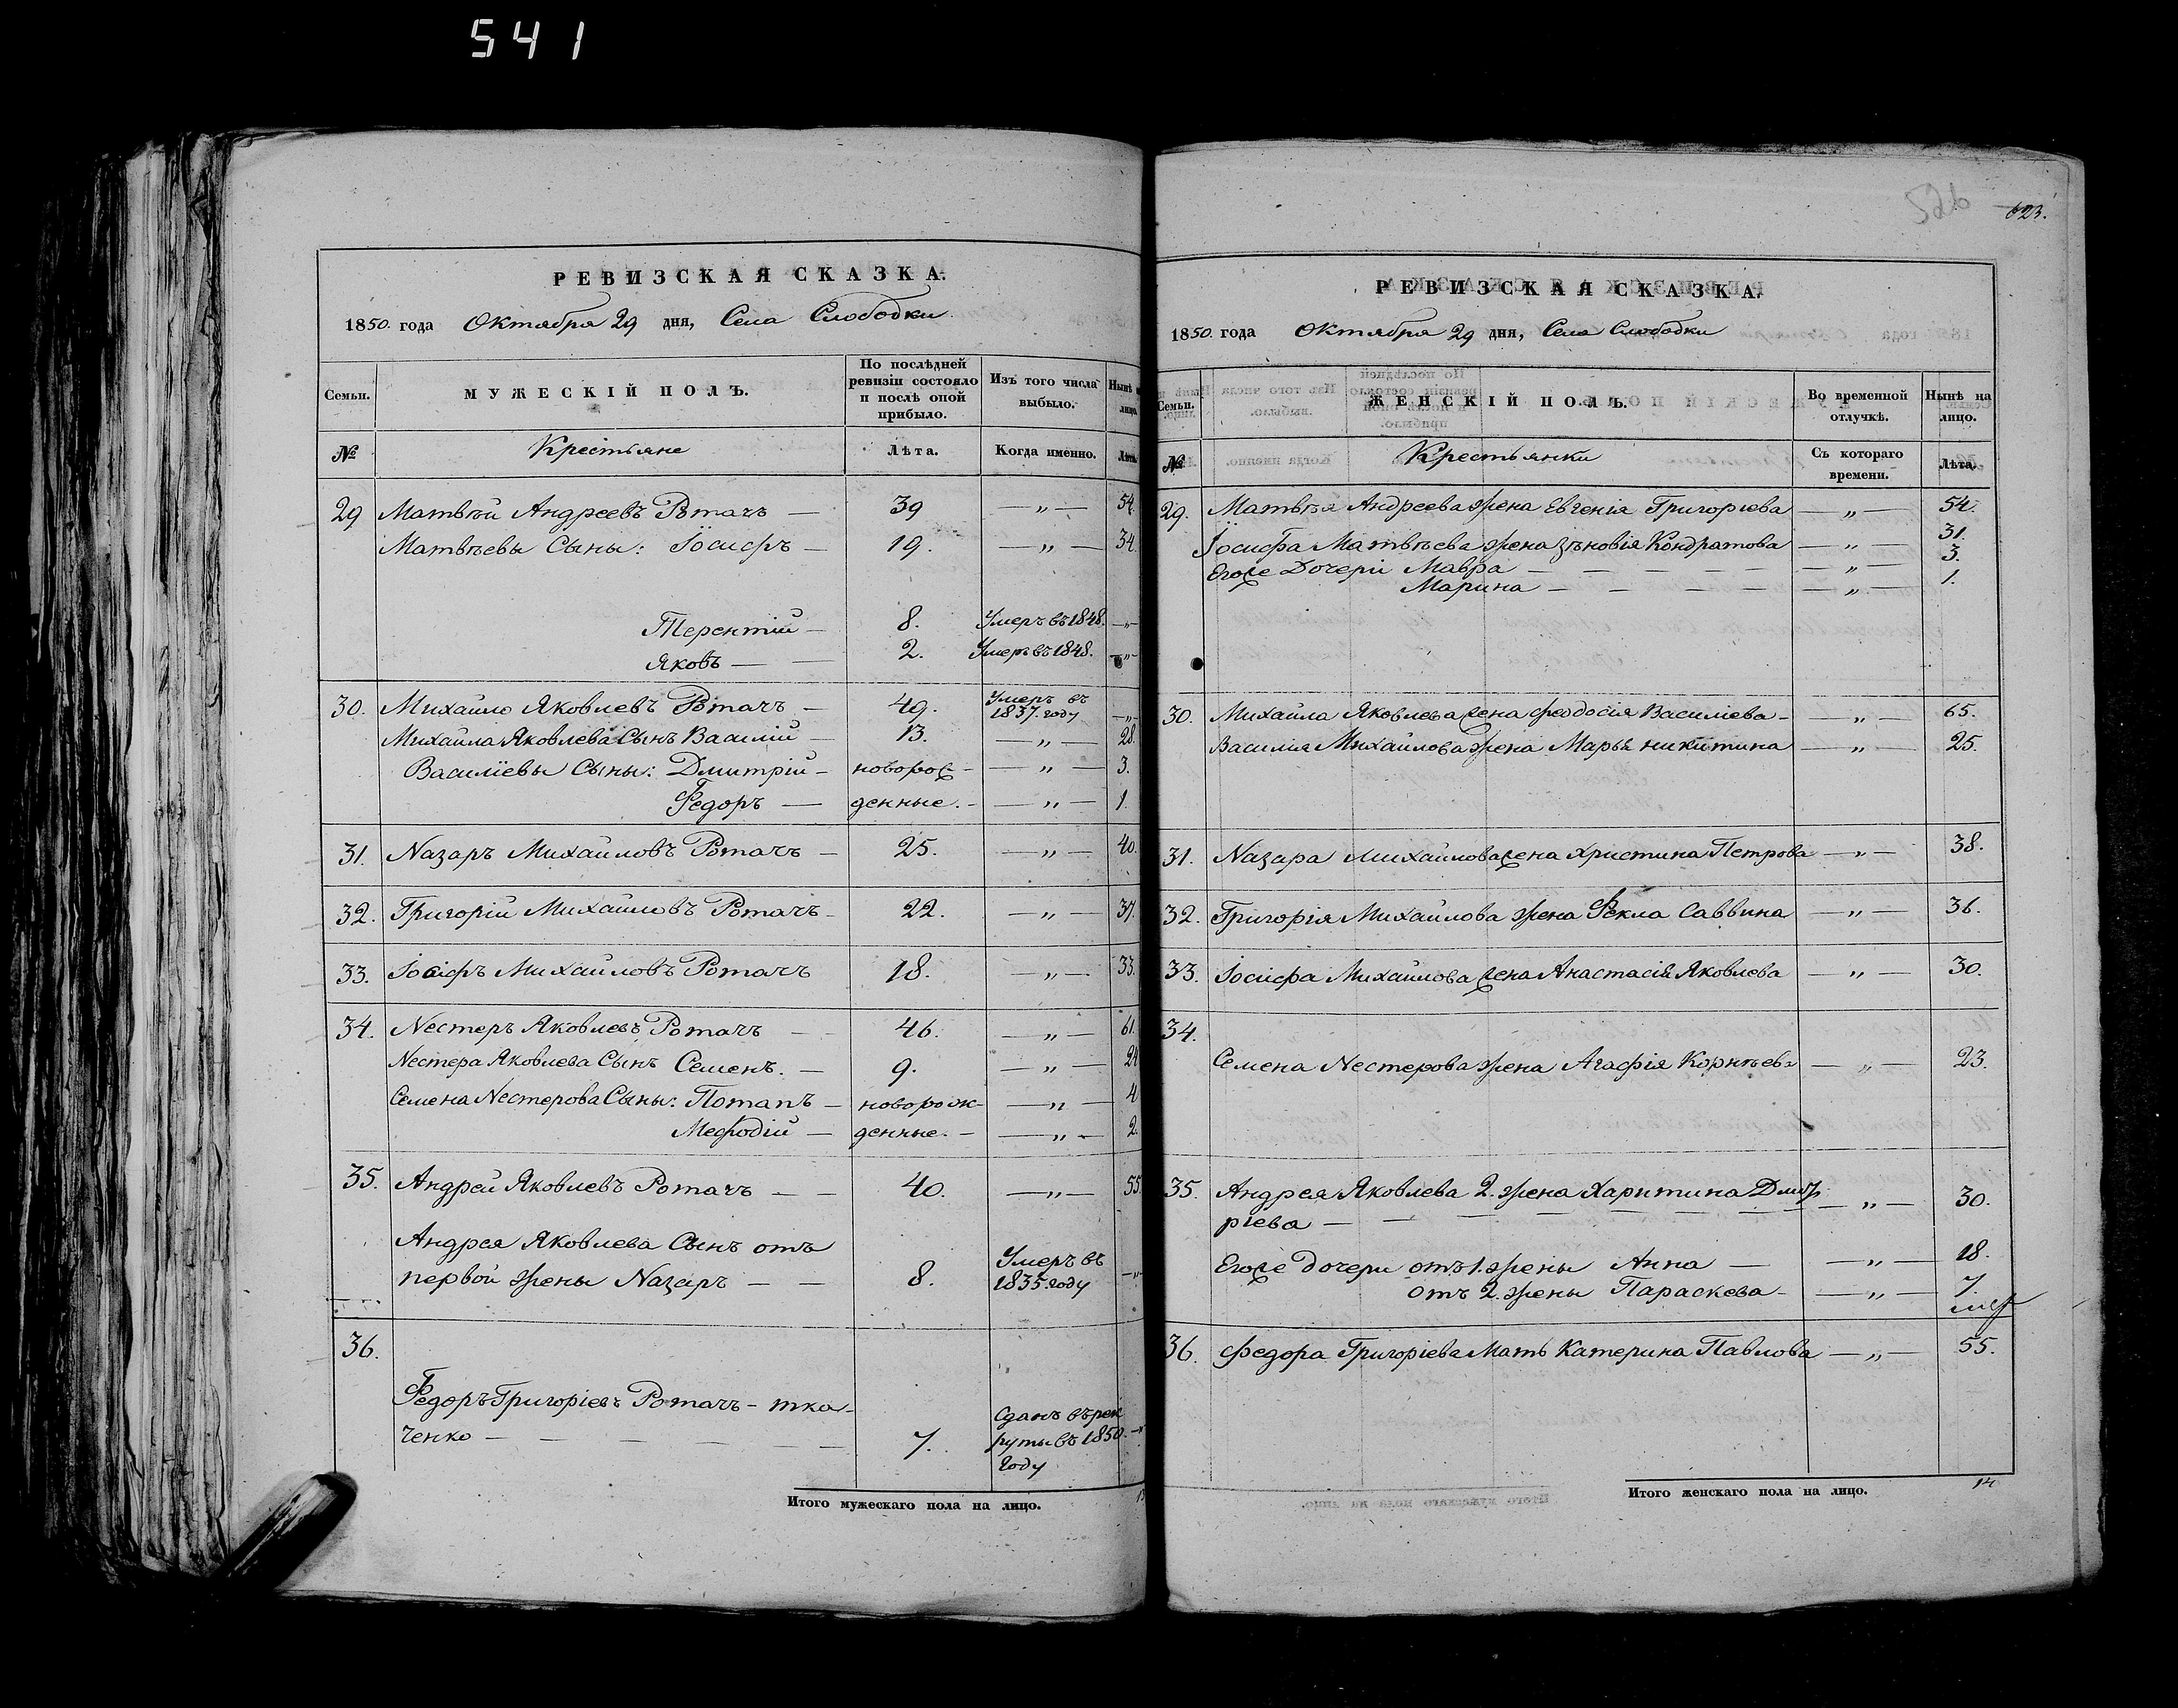 541
РЕВИЗСКАЯ СКАЗКА.
1850. года Октября 29 дня, Села Слободки
Семьи. МУЖЕСКІЙ ПОЛЪ. По послѣдней ревизіи состояло и послѣ оной прибыло. Изъ того числа выбыло. Нынѣ лицо.
№ Крестьяне Лѣта. Когда именно. Лѣта.
29 Матвѣй Андреевъ Ротачъ — 39 — „ — 54.
Матвѣевы Сыны: Іосифъ — 19. — „ — 34.
Терентій — 8. Умеръ въ 1848. — „ —
Яковъ — — 2. Умеръ въ 1848. — „ —
30. Михайло Яковлевъ Ротачъ — 49. Умеръ въ 1837. году — „ —
Михайла Яковлева Сынъ Василій — 13. — „ — 28.
Василіевы Сыны: Дмитрій — новорож- — „ — 3.
Федоръ — денные. — — „ — 1.
31. Назаръ Михайловъ Ротачъ — 25. — „ — 40.
32. Григорій Михайловъ Ротачъ — 22. — „ — 37.
33. Іосифъ Михайловъ Ротачъ 18. — „ — 33.
34. Нестеръ Яковлевъ Ротачъ — 46. — „ — 61.
Нестера Яковлева Сынъ Семенъ. — 9. — „ — 24
Семена Нестерова Сыны: Потапъ — новорож- — „ — 4
Мефодій — денные. — — „ — 2.
35. Андрей Яковлевъ Ротачъ — — 40. — „ — 55.
Андрея Яковлева Сынъ отъ
первой жены Назаръ — — 8. Умеръ въ 1835. году — „ —
36.
Федоръ Григоріевъ Ротачъ - тка-
ченко — — — — — 7. Сданъ въ рек
руты въ 1850.
году
Итого мужескаго пола на лицо.
623.
526
РЕВИЗСКАЯ СКАЗКА.
1850. года Октября 29 дня, Села Слободки
Семьи. ЖЕНСКІЙ ПОЛЪ. Во временной отлучкѣ. Нынѣ на лицо.
№ Крестьянки Съ котораго времени. Лѣта.
29. Матвѣя Андреева жена Евгенія Григорієва — „ — 54.
Іосифа Матвѣева жена Зѣновія Кондратова — „ — 31.
Егоже Дочери Мавра — — — — — — „ — 3.
Марина — — — — — „ — 1.
30. Михайла Яковлева жена Феодосія Василіева — — „ — 65.
Василія Михайлова жена Марья Никитина — „ 25.
31. Назара Михайлова жена Христина Петрова — „ — 38.
32. Григорія Михайлова жена Фекла Саввина — „ — 36.
33. Іосифа Михайлова жена Анастасія Яковлева — „ — 30.
34.
Семена Нестерова жена Агафія Корнѣева — „ — 23.
35. Андрея Яковлева 2. жена Харитина Дмит-
ріева — — — — — — — „ — 30.
Егоже дочери отъ 1. жены Анна — — „ — 18.
отъ 2. жены Параскева — — „ — 7.
36. Федора Григоріева Мать Катерина Павлова — „ — 55.
Итого женскаго пола на лицо. 14